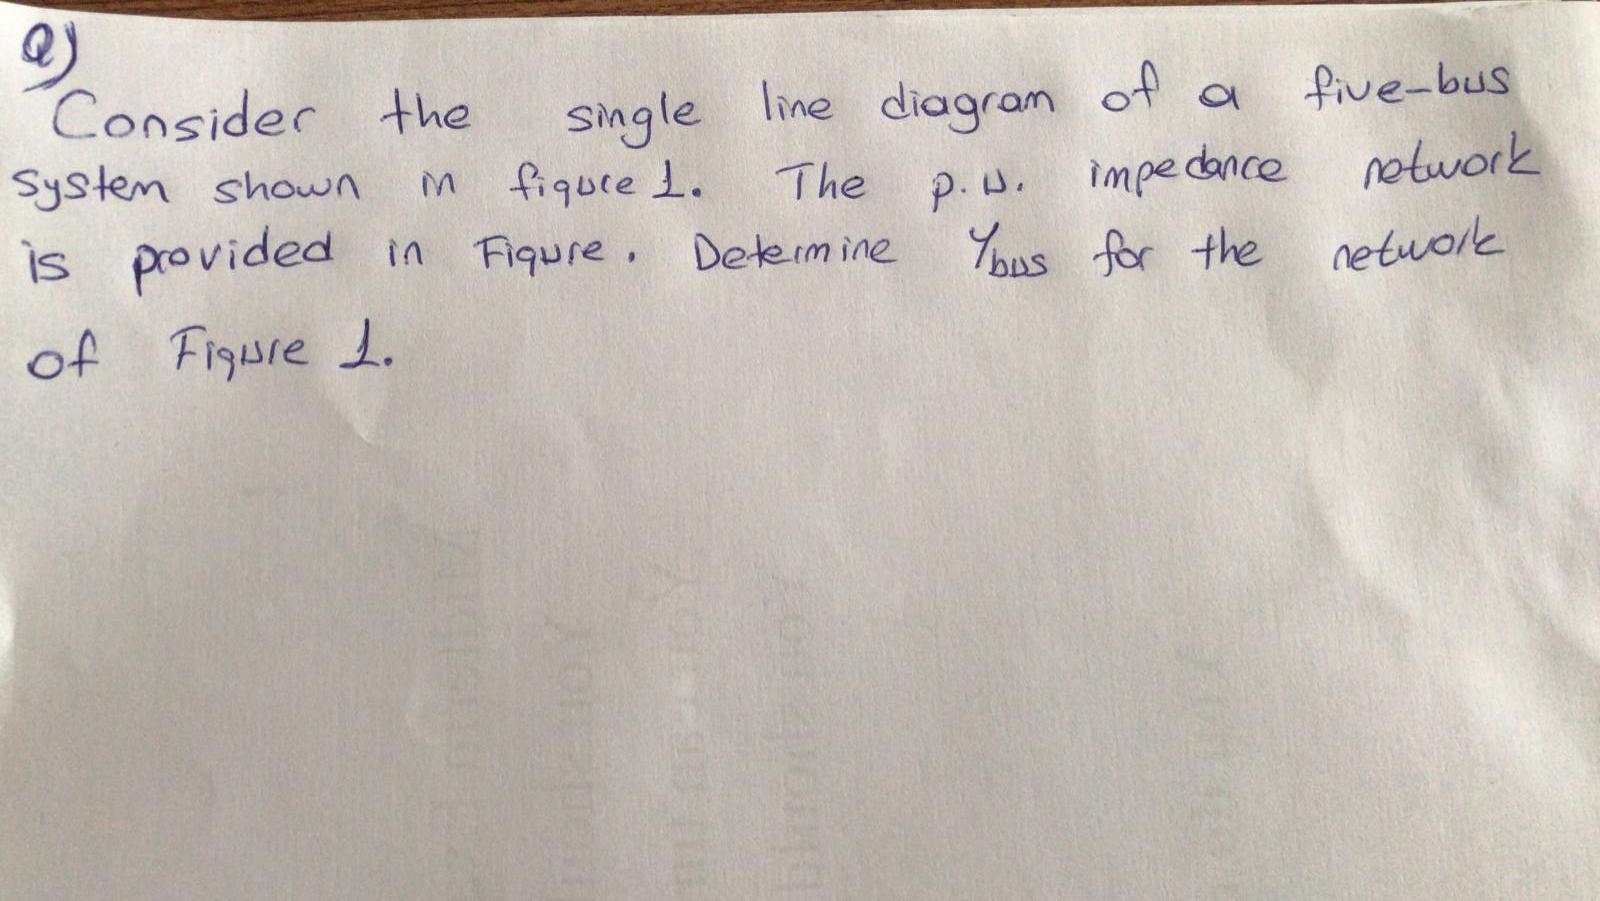 Q)
Consider the single line diagram of a five-bus
system shown in figure 1. The p.u. impedance network
is provided in Figure. Determine Ybus for the network
of Figure 1.